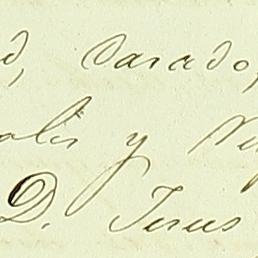 d, casado,
alis y Ve
D. Jesus